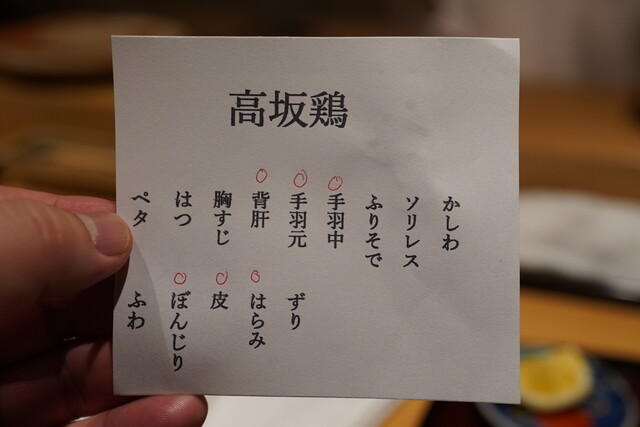 高坂鶏
かしわ
ソリレス
ふりそで
手羽中
手羽元
背肝
胸すじ
はつ
ペタ
ずり
はらみ
皮
ぼんじり
ふわ